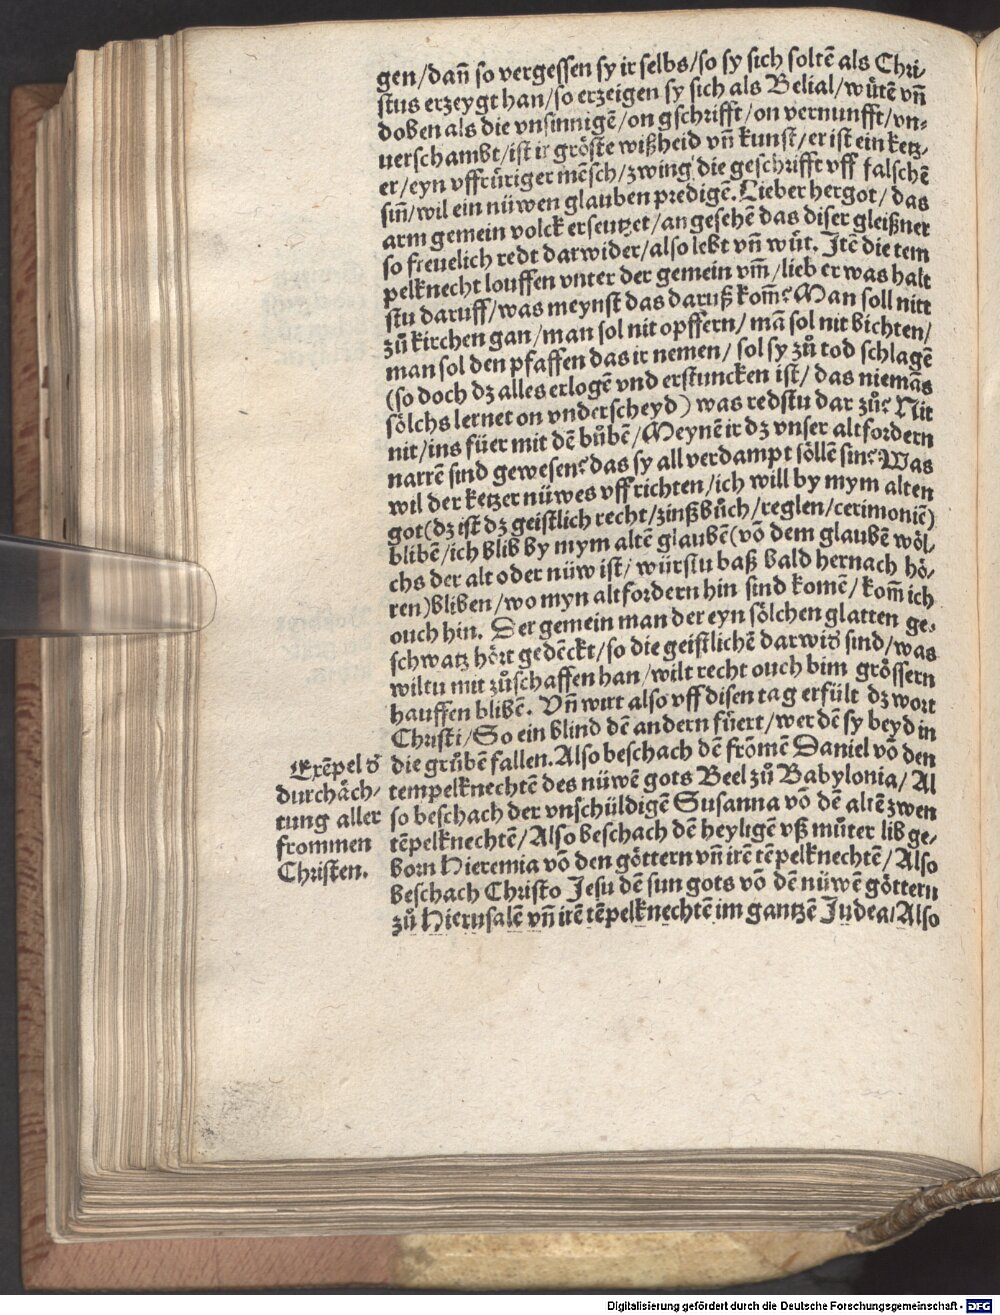 gen/dañ so vergessen sy ir selbs/so sy sich soltē als Chri⸗
stus erzeygt han/so erzeigen sy sich als Belial/wuͤtē vñ
doben als die vnsinnigē/on gschrifft/on vernunfft/vn⸗
uerschambt/ist ir groͤste wißheid vñ kunst/er ist ein ketz⸗
er/eyn vffruͤriger mēsch/zwing die geschrifft vff falschē
siñ/wil ein nuͤwen glauben predigē. Lieber hergot/das
arm gemein volck erseutzet/angesehē das diser gleißner
so freuelich redt darwider/also lebt vñ wuͤt. Itē die tem
pelknecht louffen vnter der gemein vm̄/lieber was halt
stu daruff/was meynst das daruß kom̄? Man soll nitt
zuͦ kirchen gan/man sol nit opffern/mā sol nit bichten/
man sol den pfaffen das ir nemen/sol sy zuͦ tod schlagē
(so doch dz alles erlogē vnd erstuncken ist/das niemās
soͤlchs lernet on vnderscheyd) was redstu dar zuͦ? Nit
nit/ins fuͤer mit dē buͦbē/Meynē ir dz vnser altfordern
narrē sind gewesen? das sy all verdampt soͤllē sin? Was
wil der ketzer nuͤwes vffrichten/ich will by mym alten
got(dz ist dz geistlich recht/zinßbuͦch/reglen/cerimoniē)
blibē/ich blib by mym altē glaubē(vō dem glaubē woͤl⸗
chs der alt oder nuͤw ist/wuͤrstu baß bald hernach hoͤ⸗
ren)bliben/wo myn altfordern hin sind komē/kom̄ ich
ouch hin. Der gemein man der eyn soͤlchen glatten ge⸗
schwatz hoͤrt gedēckt/so die geistlichē darwid sind/was
wiltu mit zuͦschaffen han/wilt recht ouch bim groͤssern
hauffen blibē. Vñ wirt also vff disen tag erfuͤlt dz wort
Christi/So ein blind dē andern fuͤert/werdē sy beyd in
die gruͦben fallen. Also beschach dē fromē Daniel vō den
tempelknechtē des nuͤwē gots Beel zuͦ Babylonia/Al
so beschach der vnschuͤldigē Susanna vō dē altē zwen
tēpelknechtē/Also beschach dē heyligē vß muͦter lib ge⸗
born Hieremia vō den goͤttern vñ irē tēpelknechtē/Also
beschach Christo Jesu dē sun gots vō dē nuͤwē goͤttern
zuͦ Hierusalē vñ irē tēpelknechtē im gantzē Judea/Also
Exēpel d
durchaͤch⸗
tung aller
frommen
Christen.
Digitalisierung gefördert durch die Deutsche Forschungsgemeinschaft - DFG